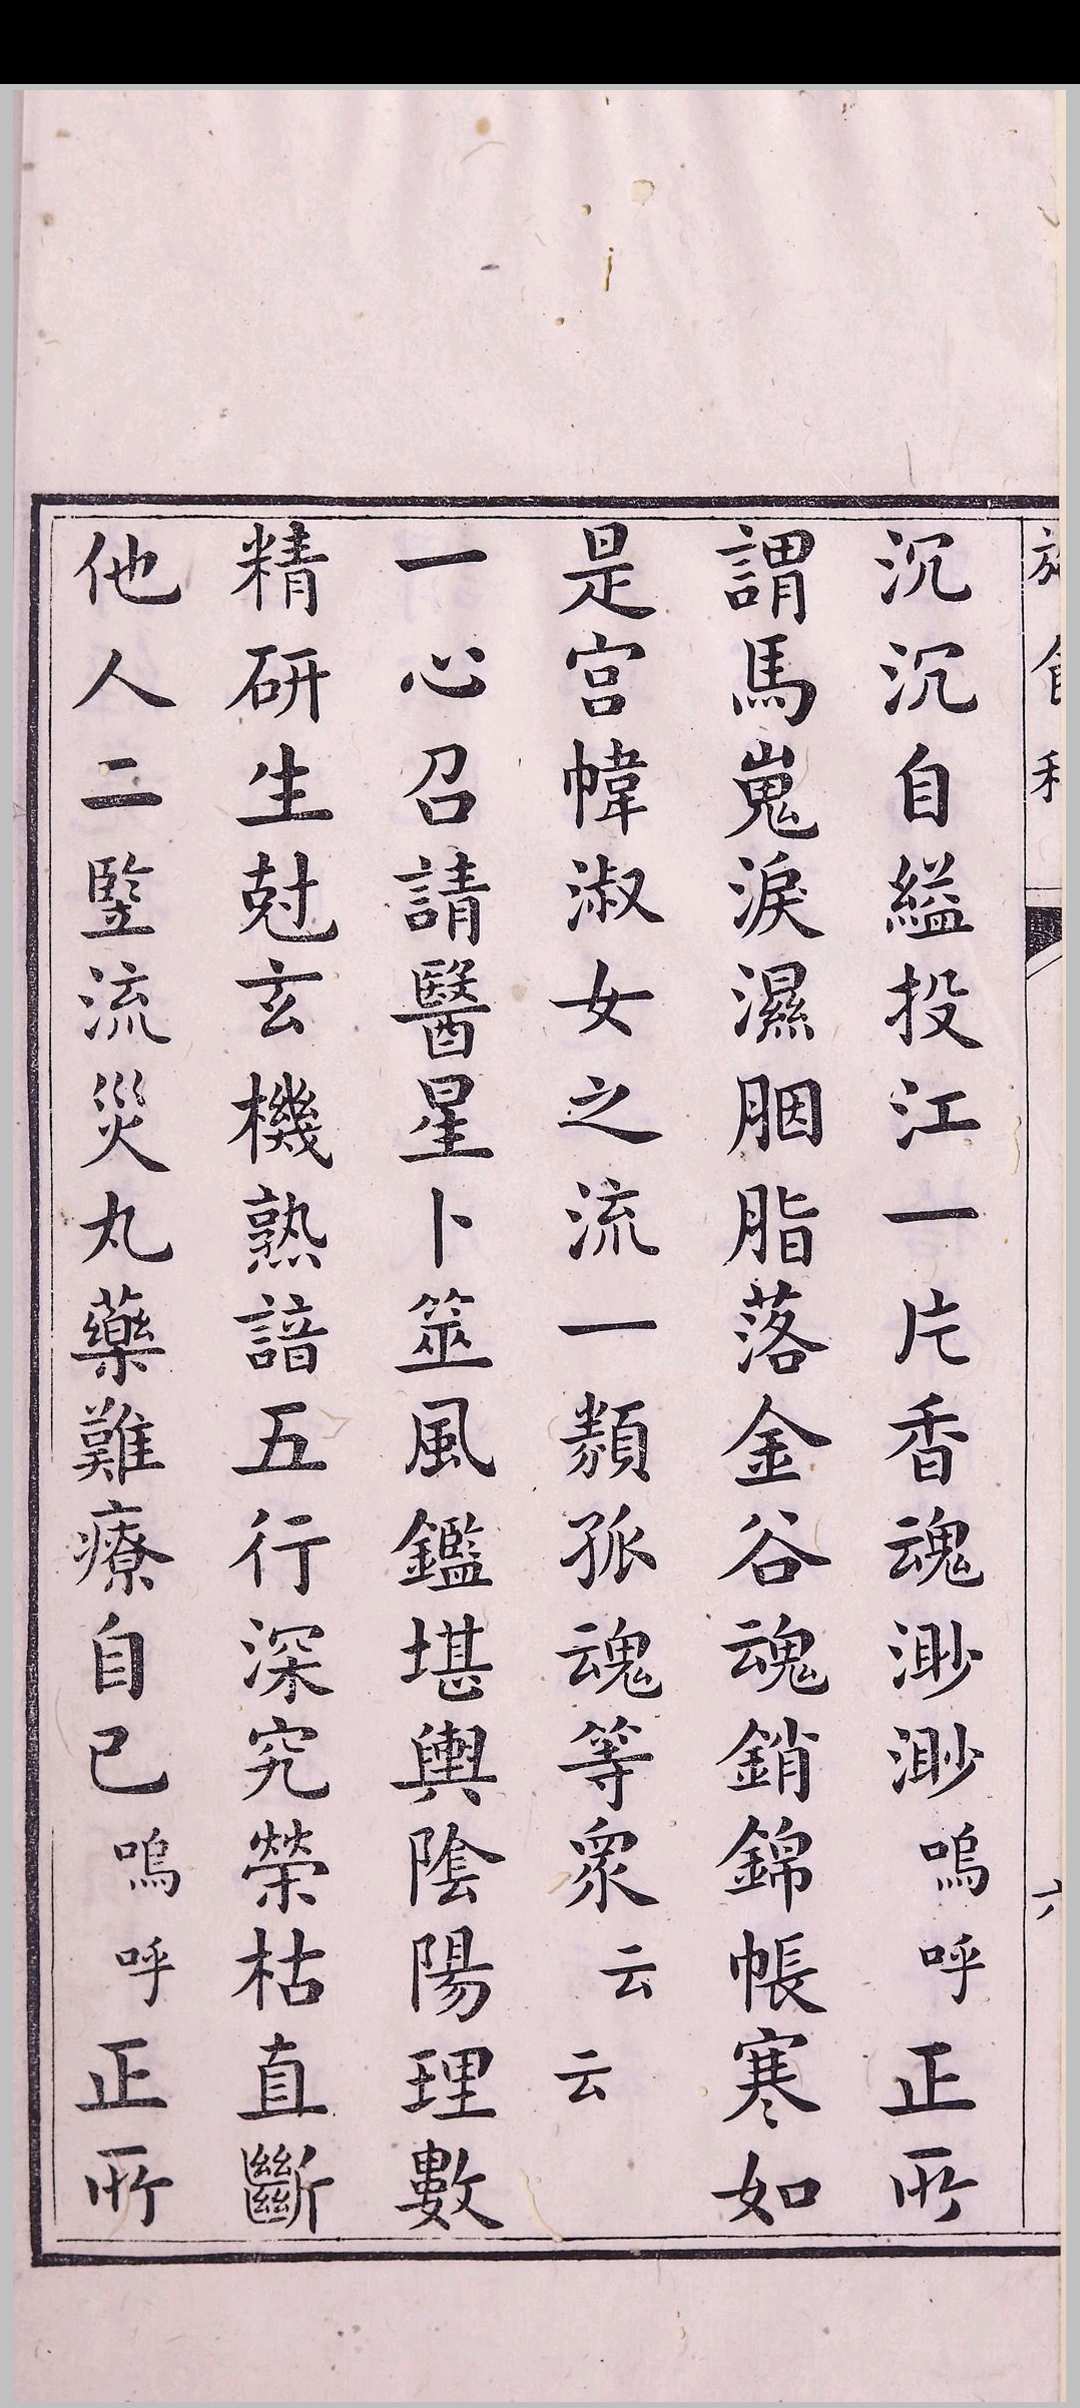 沉沉自縊投江一片香魂渺渺嗚呼正所
謂馬嵬淚濕胭脂落金谷魂銷錦帳寒如
是宮幃淑女之流一類孤魂等衆云云
一心召請醫星卜筮風鑑堪輿陰陽理數
精研生尅玄機熟諳五行深究榮枯直斷
他人二豎流災丸藥難療自己嗚呼正所